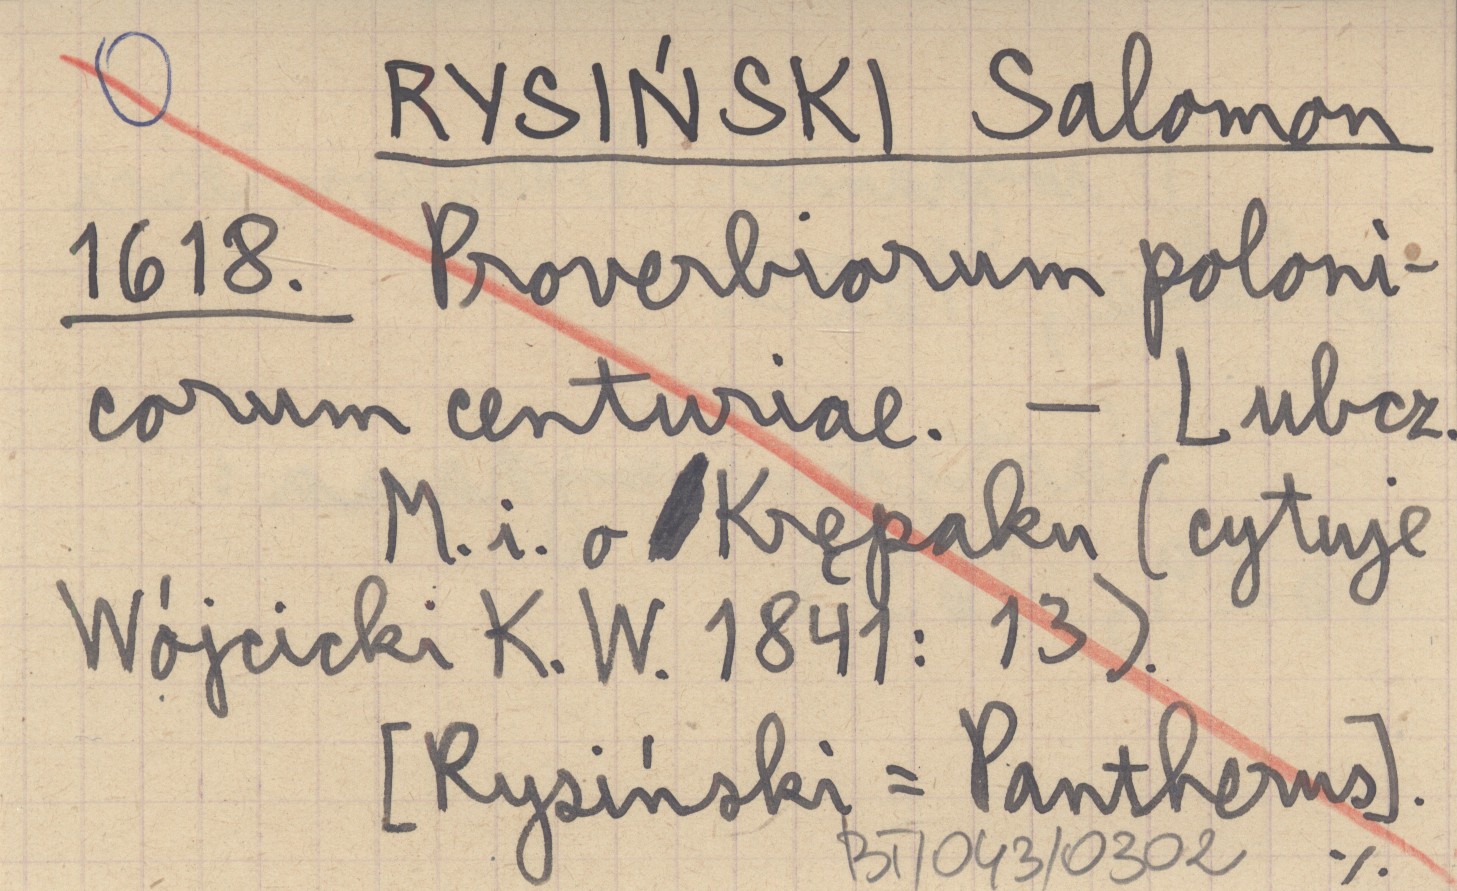 RYSIŃSKI Salomon
1618. Proverbiorum poloni-
corum centuriae. — Lubcz.
M. i. o Krępaku (cytuje
Wójcicki K. W. 1841: 13).
[Rysiński = Pantherus].
BT/043/0302 ·/.